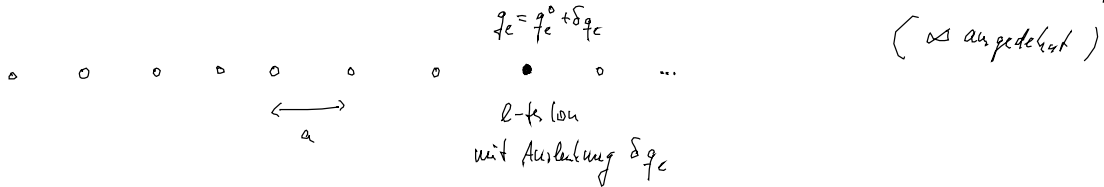 qₑ = qₑ⁰ + δqₑ
( ∞ ausgedehnt )
...
a
l-tes Ion
mit Auslenkung δqₑ